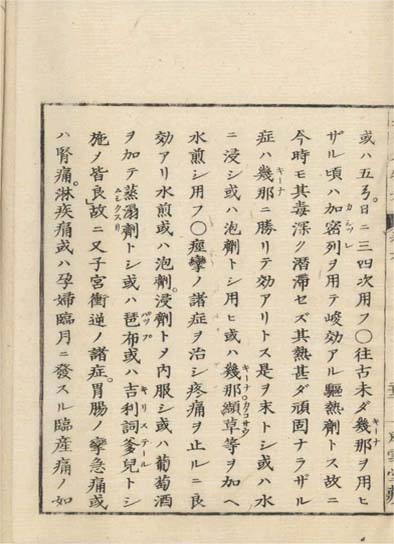 或ハ五ゟ。日ニ三四次用フ〇往古未ダ幾那ヲ用ヒ
ザル頃ハ加密列ヲ用テ峻効アル驅熱劑トス故ニ
今時モ其毒深ク潛滯セズ其熱甚ダ頑固ナラザル
症ハ幾那ニ勝リテ効アリトス是ヲ末トシ或ハ水
ニ浸シ或ハ泡劑トシ用ヒ或ハ幾那纈草等ヲ加ヘ
水煎シ用フ〇痙攣ノ諸症ヲ治シ疼痛ヲ止ルニ良
効アリ水煎或ハ泡劑。浸劑トメ内服シ或ハ葡萄酒
ヲ加テ蒸溻劑トシ或ハ琶布或ハ吉利詞爹兒トシ
施メ皆良」故ニ又子宮衝逆ノ諸症。胃腸ノ攣急痛或
ハ腎痛。淋疾痛或ハ孕婦臨月ニ發スル臨産痛ノ如